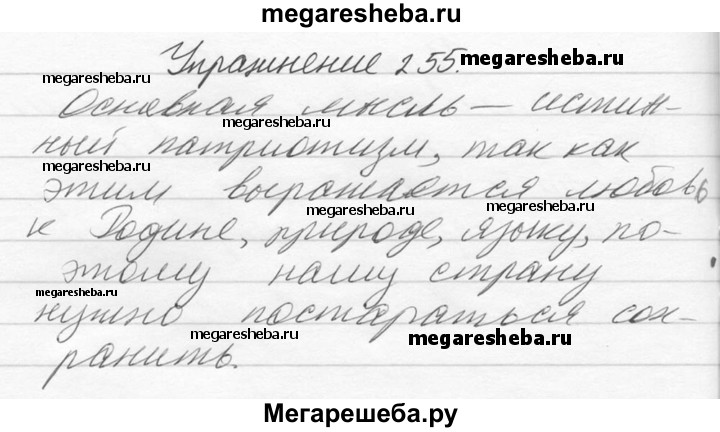 megaresheba.ru
Упражнение 255.
megaresheba.ru
megaresheba.ru
Основная мысль — истин-
megaresheba.ru
ный патриотизм, так как
megaresheba.ru
этим выражается любовь
megaresheba.ru
megaresheba.ru
к Родине, природе, языку, по-
этому нашу страну
megaresheba.ru
нужно постараться сох-
megaresheba.ru
megaresheba.ru
ранить.
Мегарешеба.ру